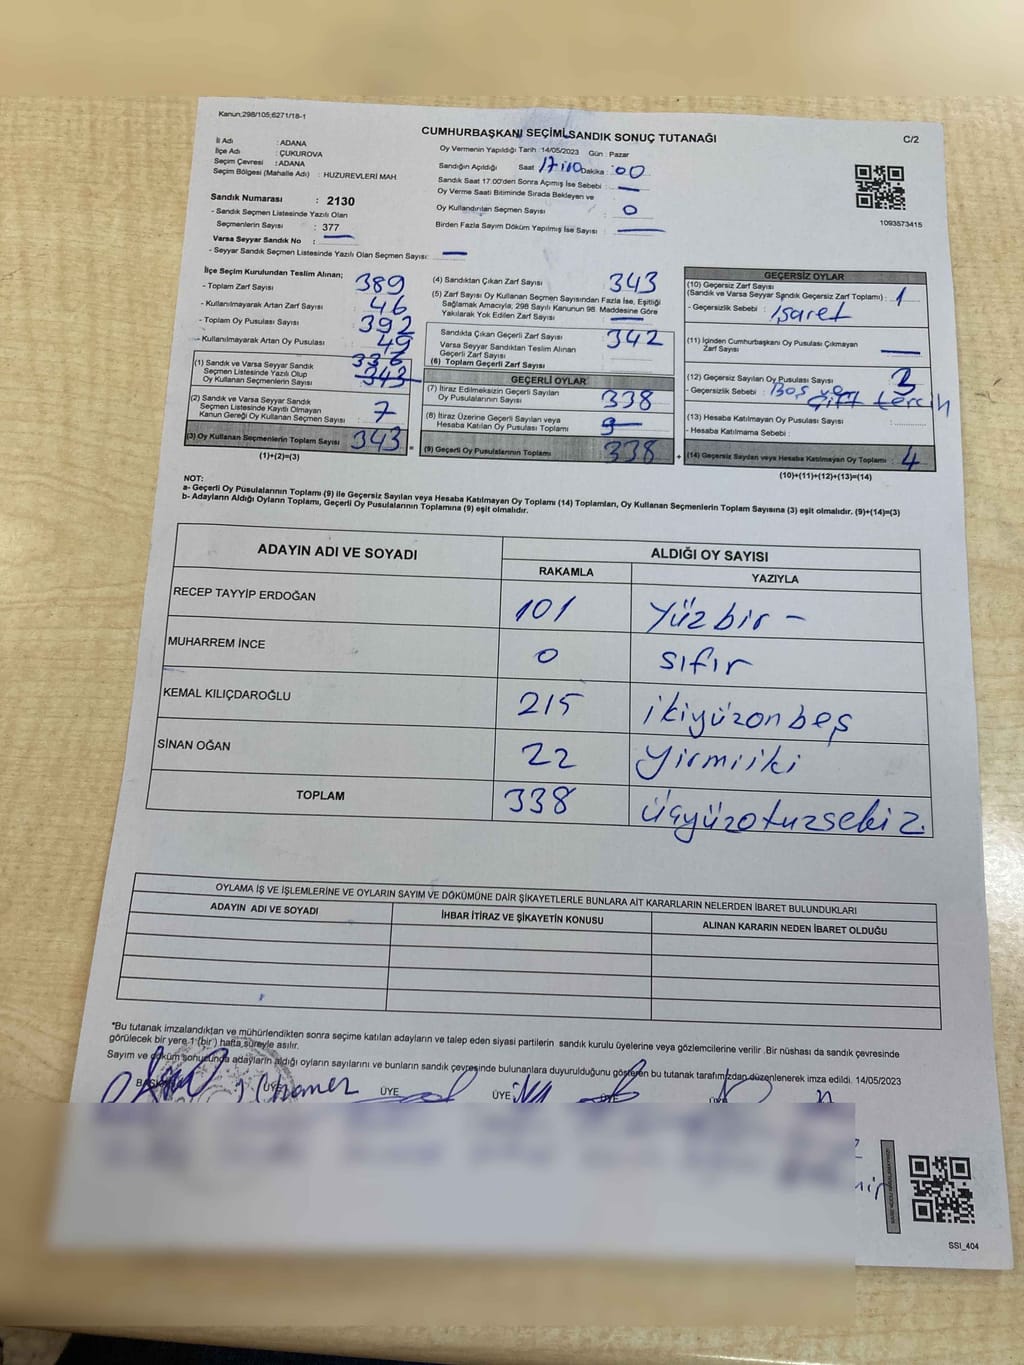 Kanun;298/105;6271/18-1
CUMHURBAŞKANI SEÇİMİ SANDIK SONUÇ TUTANAĞI
C/2
İl Adı : ADANA
İlçe Adı : ÇUKUROVA
Seçim Çevresi : ADANA
Seçim Bölgesi (Mahalle Adı) : HUZUREVLERİ MAH
Sandık Numarası : 2130
- Sandık Seçmen Listesinde Yazılı Olan
Seçmenlerin Sayısı : 377
Varsa Seyyar Sandık No : —
- Seyyar Sandık Seçmen Listesinde Yazılı Olan Seçmen Sayısı: —
Oy Vermenin Yapıldığı Tarih :14/05/2023 Gün : Pazar
Sandığın Açıldığı Saat Dakika : 00
Sandık Saat 17.00'den Sonra Açımış İse Sebebi : —
Oy Verme Saati Bitiminde Sırada Bekleyen ve
Oy Kullandırılan Seçmen Sayısı : 0
Birden Fazla Sayım Döküm Yapılmış İse Sayısı : —
1093573415
İlçe Seçim Kurulundan Teslim Alınan;
- Toplam Zarf Sayısı : 389
- Kullanılmayarak Artan Zarf Sayısı : 46
- Toplam Oy Pusulası Sayısı : 392
- Kullanılmayarak Artan Oy Pusulası : 49
(1) Sandık ve Varsa Seyyar Sandık
Seçmen Listesinde Yazılı Olup
Oy Kullanan Seçmenlerin Sayısı : 336
343
(2) Sandık ve Varsa Seyyar Sandık
Seçmen Listesinde Kayıtlı Olmayan
Kanun Gereği Oy Kullanan Seçmen Sayısı : 7
(3) Oy Kullanan Seçmenlerin Toplam Sayısı : 343
(1)+(2)=(3)
(4) Sandıktan Çıkan Zarf Sayısı : 343
(5) Zarf Sayısı Oy Kullanan Seçmen Sayısından Fazla İse, Eşitliği
Sağlamak Amacıyla, 298 Sayılı Kanunun 98. Maddesine Göre
Yakılarak Yok Edilen Zarf Sayısı : —
Sandıkta Çıkan Geçerli Zarf Sayısı : 342
Varsa Seyyar Sandıktan Teslim Alınan
Geçerli Zarf Sayısı
(6) Toplam Geçerli Zarf Sayısı
GEÇERLİ OYLAR
(7) İtiraz Edilmeksizin Geçerli Sayılan
Oy Pusulalarının Sayısı : 338
(8) İtiraz Üzerine Geçerli Sayılan veya
Hesaba Katılan Oy Pusulası Toplamı :
(9) Geçerli Oy Pusulalarının Toplamı : 338
GEÇERSİZ OYLAR
(10) Geçersiz Zarf Sayısı
(Sandık ve Varsa Seyyar Sandık Geçersiz Zarf Toplamı) : 1
- Geçersizlik Sebebi : işaret
(11) İçinden Cumhurbaşkanı Oy Pusulası Çıkmayan
Zarf Sayısı : —
(12) Geçersiz Sayılan Oy Pusulası Sayısı : 3
- Geçersizlik Sebebi : Boş ve
Çift tercih
(13) Hesaba Katılmayan Oy Pusulası Sayısı :
- Hesaba Katılmama Sebebi :
(14) Geçersiz Sayılan veya Hesaba Katılmayan Oy Toplamı : 4
(10)+(11)+(12)+(13)=(14)
NOT:
a- Geçerli Oy Pusulalarının Toplamı (9) ile Geçersiz Sayılan veya Hesaba Katılmayan Oy Toplamı (14) Toplamları, Oy Kullanan Seçmenlerin Toplam Sayısına (3) eşit olmalıdır. (9)+(14)=(3)
b- Adayların Aldığı Oyların Toplamı, Geçerli Oy Pusulalarının Toplamına (9) eşit olmalıdır.
ADAYIN ADI VE SOYADI ALDIĞI OY SAYISI
RAKAMLA YAZIYLA
RECEP TAYYİP ERDOĞAN 101 Yüzbir -
MUHARREM İNCE 0 sıfır
KEMAL KILIÇDAROĞLU 215 ikiyüzonbeş
SİNAN OĞAN 22 Yirmiiki
TOPLAM 338 üçyüzotuzsekiz.
OYLAMA İŞ VE İŞLEMLERİNE VE OYLARIN SAYIM VE DÖKÜMÜNE DAİR ŞİKAYETLERLE BUNLARA AİT KARARLARIN NELERDEN İBARET BULUNDUKLARI
ADAYIN ADI VE SOYADI İHBAR İTİRAZ VE ŞİKAYETİN KONUSU ALINAN KARARIN NEDEN İBARET OLDUĞU
"Bu tutanak imzalandıktan ve mühürlendikten sonra seçime katılan adayların ve talep eden siyasi partilerin sandık kurulu üyelerine veya gözlemcilerine verilir .Bir nüshası da sandık çevresinde
görülecek bir yere 1 (bir ) hafta süreyle asılır.
Sayım ve döküm sonucunda adayların aldığı oyların sayılarını ve bunların sandık çevresinde bulunanlara duyurulduğunu gösteren bu tutanak tarafımızdan düzenlenerek imza edildi. 14/05/2023
ÜYE ÜYE ÜYE
SSI_404